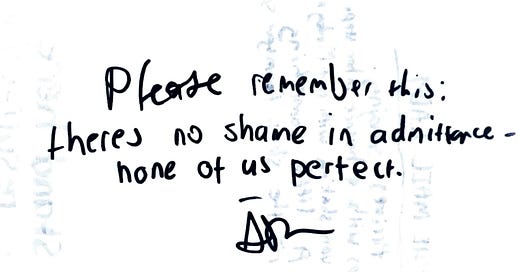 Please remember this:
theres no shame in admittance -
none of us perfect.